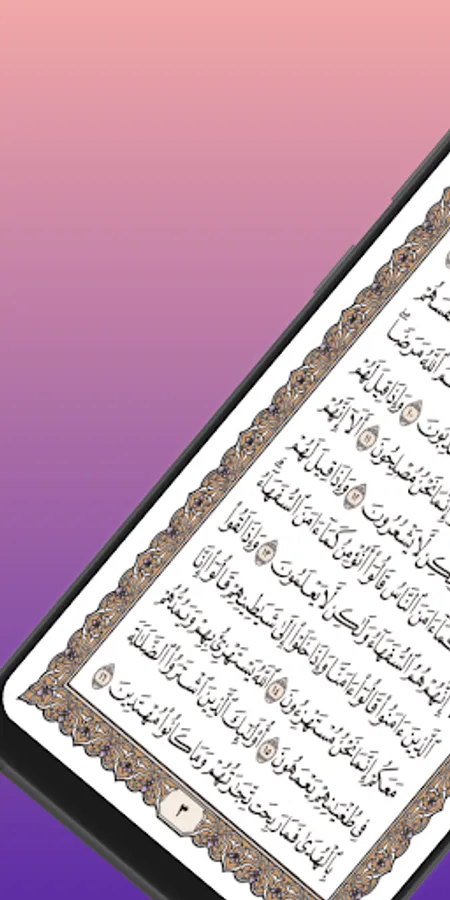 ٱللَّهُ مَرَضًا
١٠ وَإِذَا قِيلَ لَهُمْ
إِنَّمَا نَحْنُ مُصْلِحُونَ ١١ أَلَآ إِنَّهُمْ
لَّا يَشْعُرُونَ ١٢ وَإِذَا قِيلَ لَهُمْ
ءَامَنَ ٱلنَّاسُ قَالُوٓا۟ أَنُؤْمِنُ كَمَآ ءَامَنَ ٱلسُّفَهَآءُ
إِنَّهُمْ هُمُ ٱلسُّفَهَآءُ وَلَٰكِن لَّا يَعْلَمُونَ ١٣ وَإِذَا لَقُوا۟
ٱلَّذِينَ ءَامَنُوا۟ قَالُوٓا۟ ءَامَنَّا وَإِذَا خَلَوْا۟ إِلَىٰ شَيَٰطِينِهِمْ قَالُوٓا۟ إِنَّا
مَعَكُمْ إِنَّمَا نَحْنُ مُسْتَهْزِءُونَ ١٤ ٱللَّهُ يَسْتَهْزِئُ بِهِمْ وَيَمُدُّهُمْ
فِى طُغْيَٰنِهِمْ يَعْمَهُونَ ١٥ أُو۟لَٰٓئِكَ ٱلَّذِينَ ٱشْتَرَوُا۟ ٱلضَّلَٰلَةَ
بِٱلْهُدَىٰ فَمَا رَبِحَت تِّجَٰرَتُهُمْ وَمَا كَانُوا۟ مُهْتَدِينَ ١٦
٣